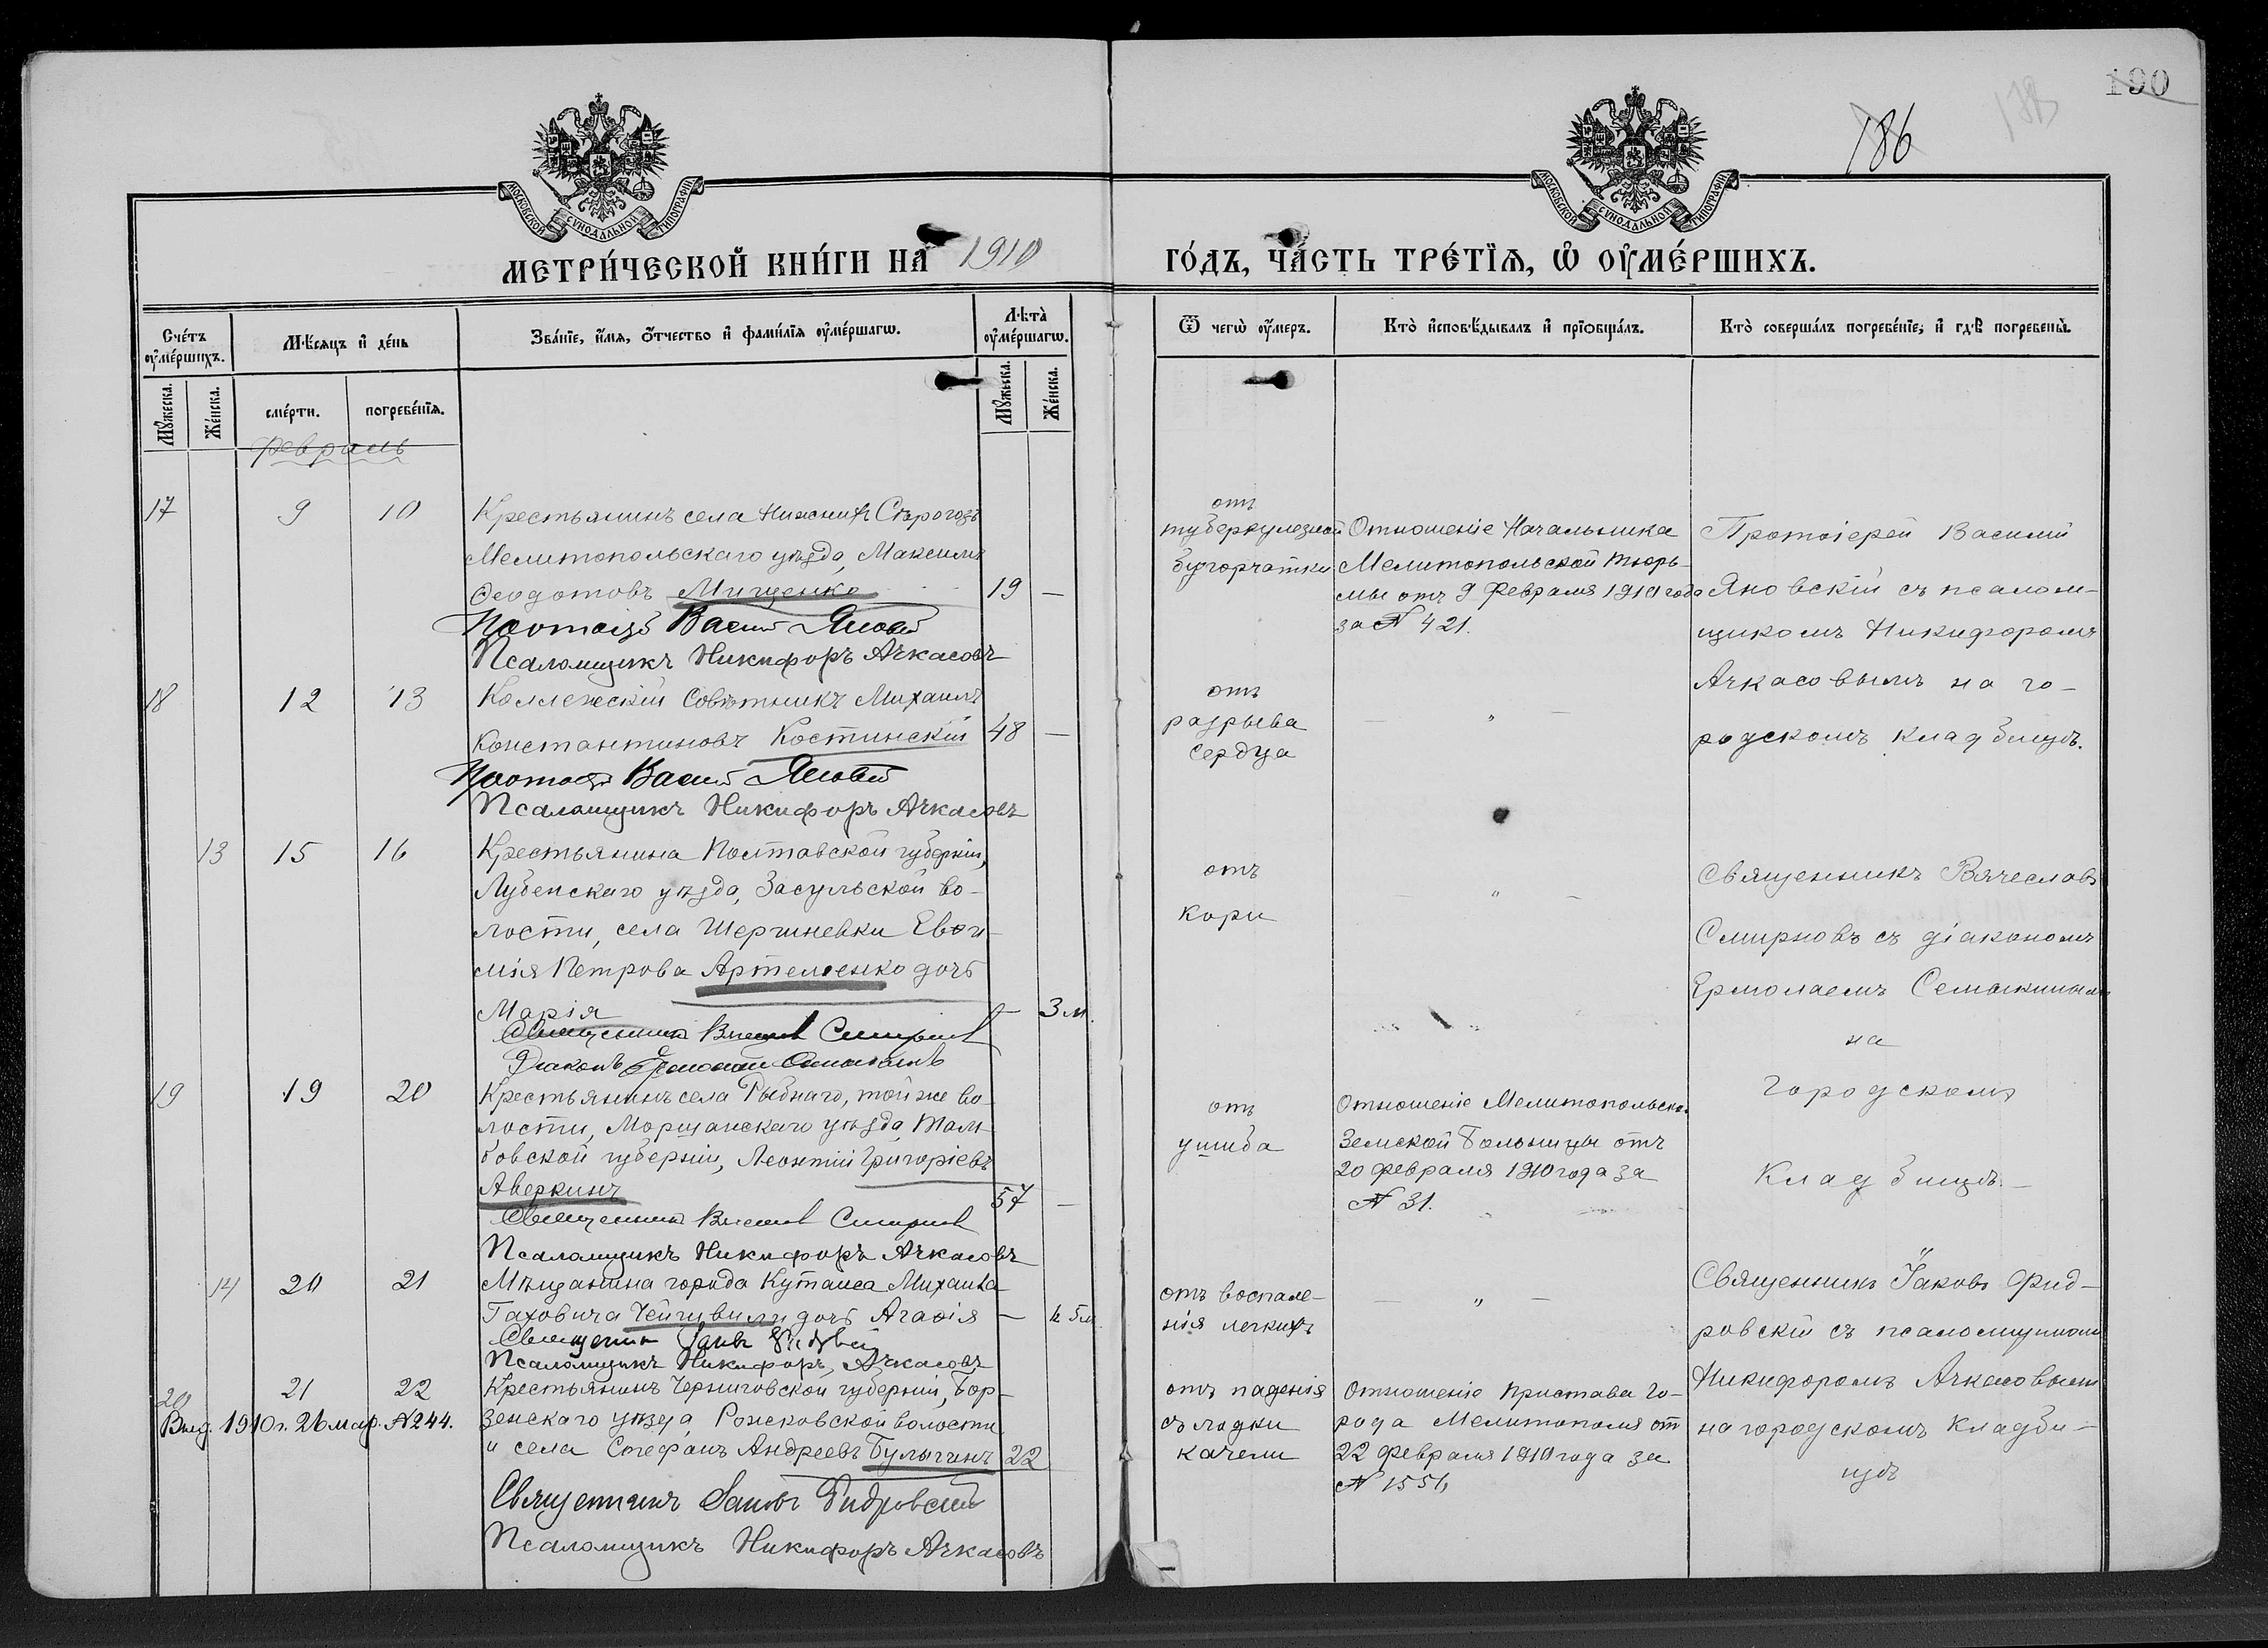 190
186
МОСКОВСКОЙ СѴНОДАЛЬНОЙ ТИПОГРАФІИ
МОСКОВСКОЙ СѴНОДАЛЬНОЙ ТИПОГРАФІИ
МЕТРИ́ЧЕСКОЙ КНИ́ГИ НА 1910
ГО́ДЪ, ЧА́СТЬ ТРЕ́ТІѦ, Ѡ ОУ҆МЕ́РШИХЪ.
Сче́тъ оу҆ме́ршихъ.
Мѣ́сяцъ и҆ де́нь
Зва́нїе, и҆́мѧ, ѻ҆́тчество и҆ фами́лїѧ оу҆ме́ршагѡ.
Лѣ́та̀ оу҆ме́ршагѡ.
Мꙋ́жеска.
Же́нска.
сме́рти.
погребе́нїѧ.
Мꙋ́жеска.
Же́нска.
Ѿ чегѡ̀ оу҆́меръ.
Кто̀ и҆сповѣ́дывалъ и҆ прїѻбща́лъ.
Кто̀ соверша́лъ погребе́нїе, и҆ гдѣ̀ погребены̀.
Февраль
17 9 10
Крестьянинъ села Нижнихъ Сѣрогозъ
Мелитопольскаго уѣзда, Максимъ
Ѳеодотовъ Мищенко 19 —
Протоіер Васил Яновск
Псаломщикъ Никифоръ Ачкасовъ
отъ
туберкулезной
бугорчатки
Отношеніе Начальника
Мелитопольской тюрь-
мы отъ 9 Февраля 1910 года
за № 421.
Протоіерей Василій
Яновскій съ псалом-
щикомъ Никифоромъ
Ачкасовымъ на го-
родскомъ кладбищѣ.
18 12 13
Коллежскій Совѣтникъ Михаилъ
Константиновъ Костинскій 48 —
Протоіер Васил Яновск
Псаломщикъ Никифоръ Ачкасовъ
отъ
разрыва
сердца
— „ —
13 15 16
Крестьянина Полтавской губерніи,
Лубенскаго уѣзда, Засульской во-
лости, села Шершневки Евѳи-
мія Петрова Артеменко дочь
Марія — 3 м.
Священникъ Вячеслав Смирнов
Діаконъ Ермолай Семыкинъ
отъ
кори
— „ —
Священникъ Вячеславъ
Смирновъ съ діакономъ
Ермолаемъ Семыкинымъ
на
городскомъ
Кладбищѣ.—
19 19 20
Крестьянинъ села Рыбнаго, той же во-
лости, Моршанскаго уѣзда, Там-
бовской губерніи, Леонтій Григоріевъ
Аверкинъ 57 —
Священникъ Вячеслав Смирнов
Псаломщикъ Никифоръ Ачкасовъ
отъ
ушиба
Отношеніе Мелитопольск.
Земской Больницы отъ
20 Февраля 1910 года за
№ 31.
14 20 21
Мѣщанина города Кутаиса Михаила
Таховича дочь Агаѳія —
Священникъ Яковъ
Псаломщикъ Никифоръ Ачкасовъ
отъ воспале-
нія легкихъ
— „ —
Священникъ Іаковъ Фид-
ровскій съ псаломщикомъ
Никифоромъ Ачкасовымъ
на городскомъ кладби-
щѣ
20 21 22
Выд. 1910 г. 26 мар. № 244.
Крестьянинъ Черниговской губерніи, Бор-
зенскаго уѣзда, Рожковской волости
и села Стефанъ Андреевъ Булыгинъ 22
Священникъ Іаковъ Фидровскій
Псаломщикъ Никифоръ Ачкасовъ
отъ паденія
съ лодки
качели
Отношеніе Пристава го-
рода Мелитополя от
22 Февраля 1910 года за
№ 1551,